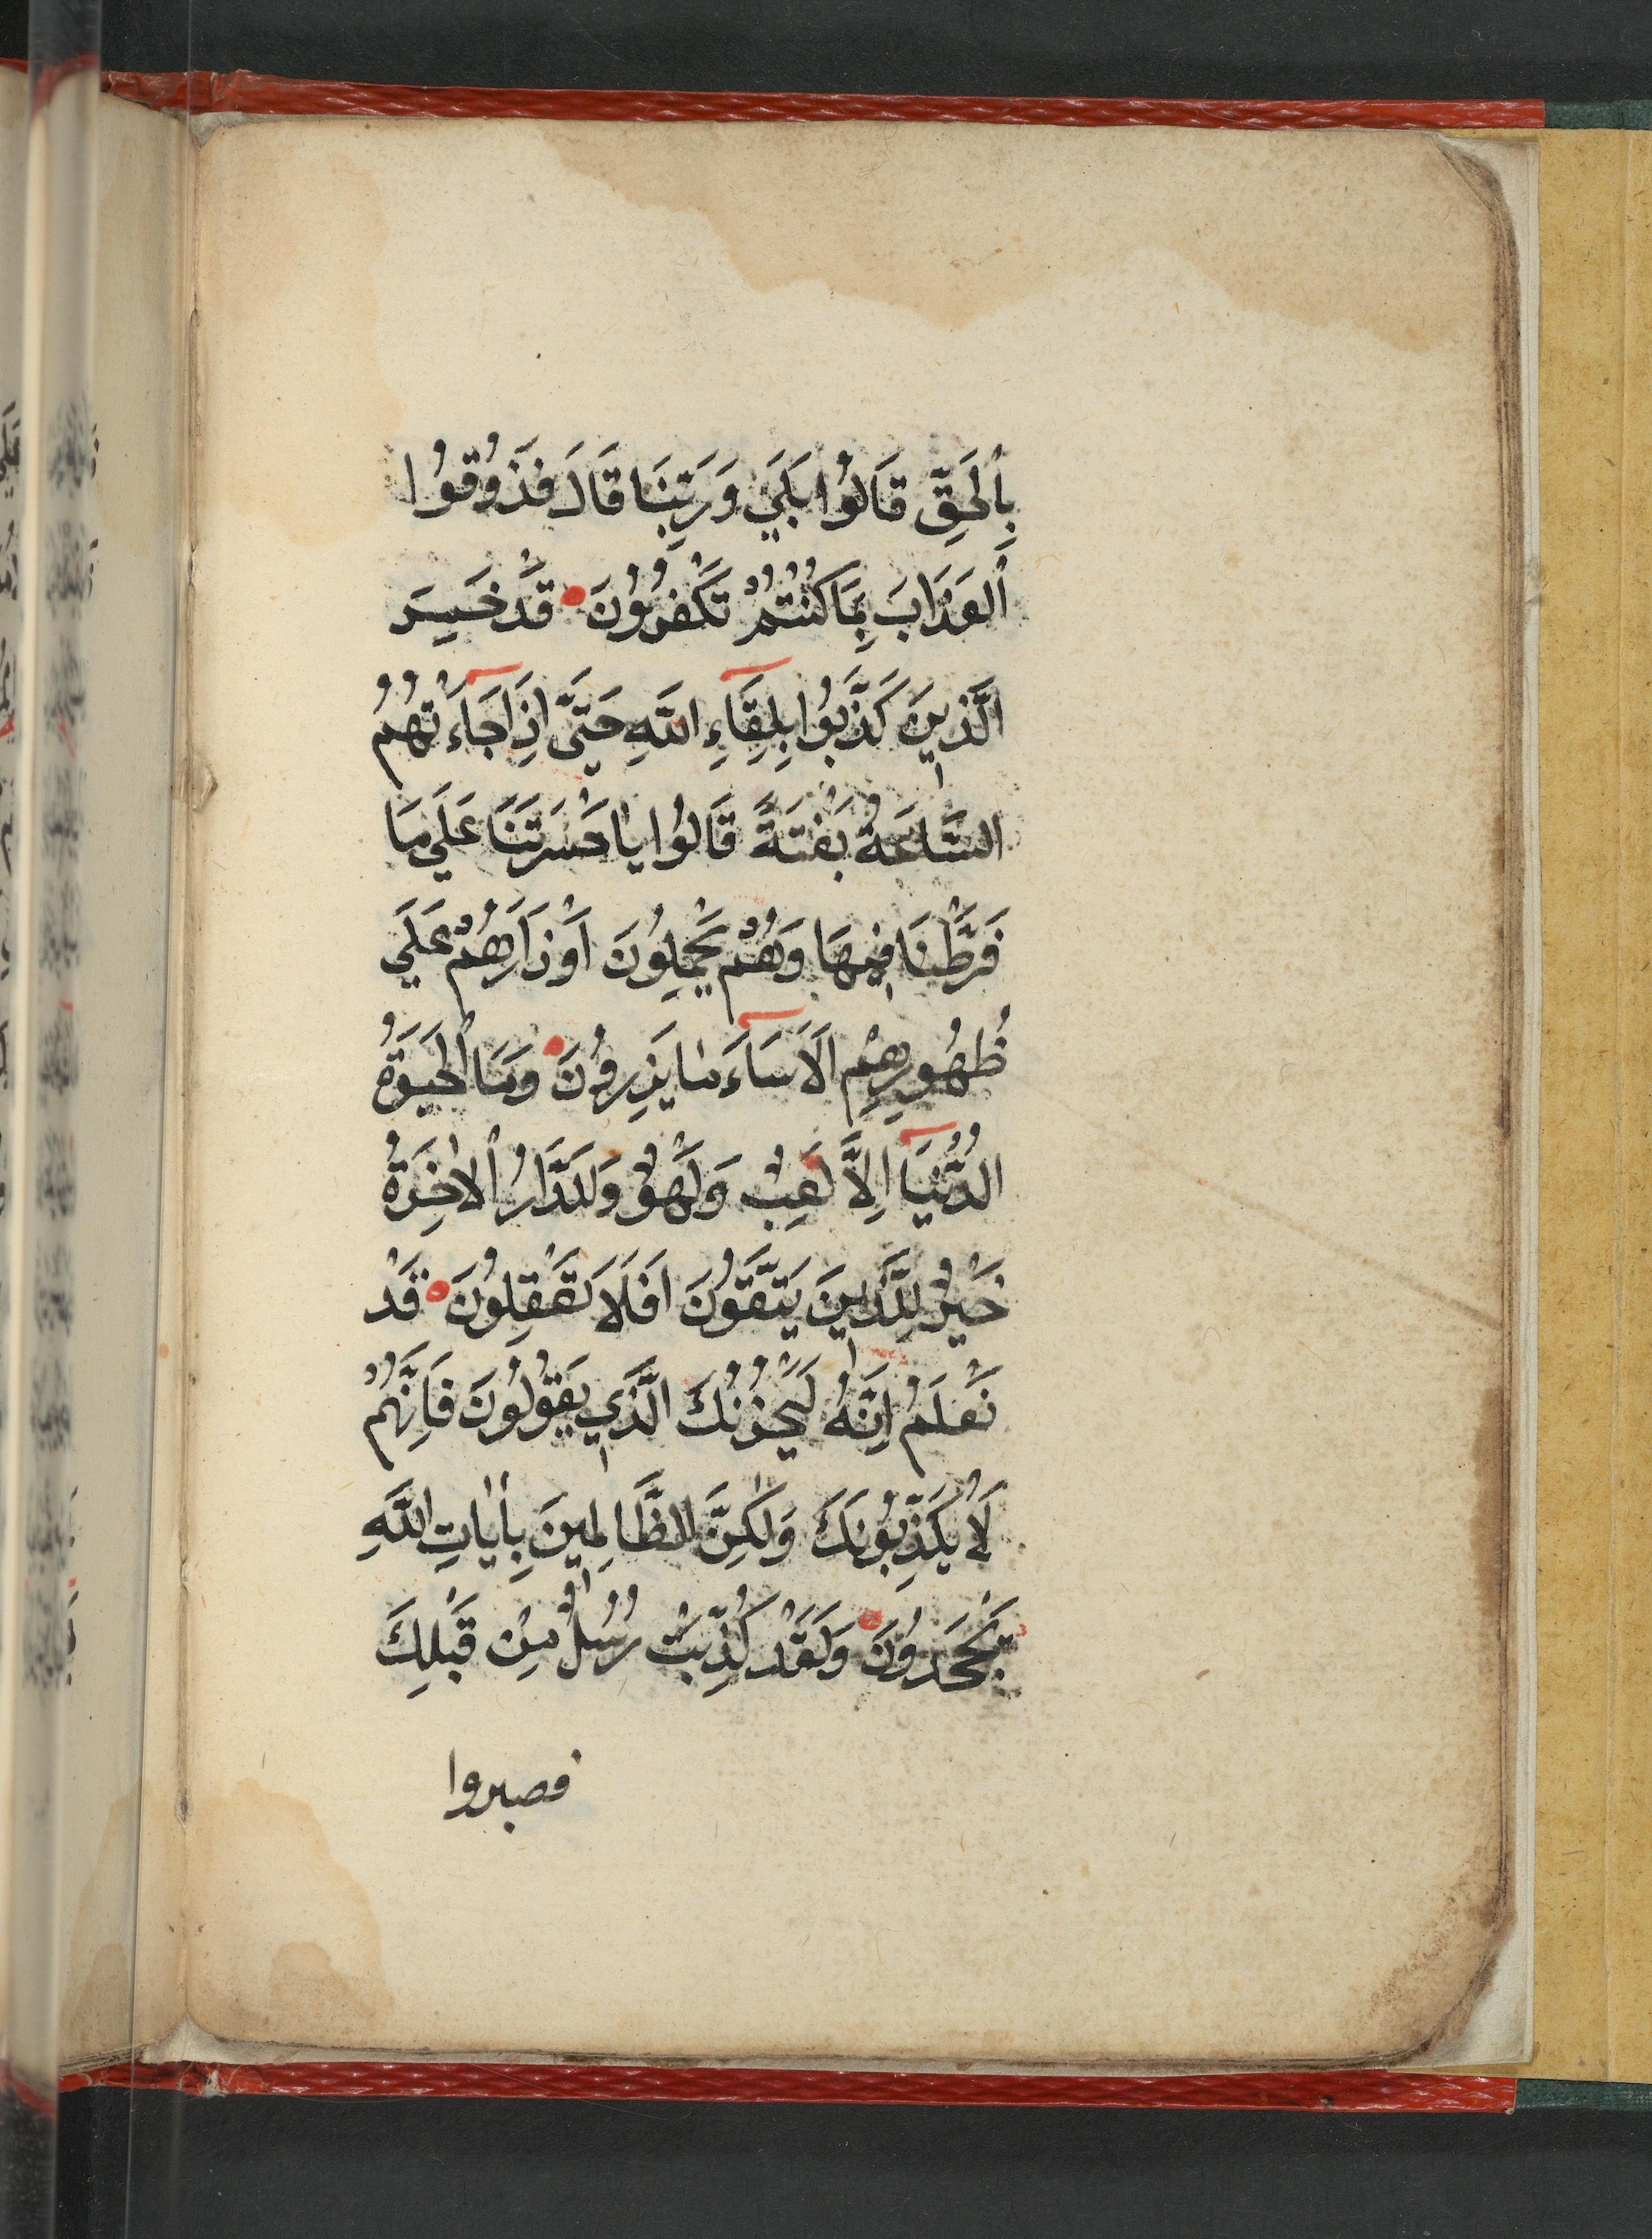 بِالْحَقِّ قَالُوا بَلَي وَرَبِّنَا قَالَ فَذُوقُوا
اَلْعَذَابَ بِمَا كُنْتُمْ تَكْفُرُونَ قَدْ خَسِرَ
الَّذِينَ كَذَّبُوا بِلِقَاءِ اللّٰهِ حَتَّى اِذَا جَاءَتْهُمُ
السَّاعَةُ بَغْتَةً قَالُوا يَا حَسْرَتَنَا عَلَي مَا
فَرَّطْنَا فِيهَا وَهُمْ يَحْمِلُونَ اَوْزَارَهُمْ عَلَي
ظُهُورِهِمْ اَلَا سَاءَ مَا يَزِرُونَ وَمَا الْحَيٰوةُ
الدُّنْيَا اِلَّا لَعِبٌ وَلَهْوٌ وَلَلدَّارُ الْاٰخِرَةُ
خَيْرٌ لِلَّذِينَ يَتَّقُونَ اَفَلَا تَعْقِلُونَ قَدْ
نَعْلَمُ اِنَّهُ لَيَحْزُنُكَ الَّذِي يَقُولُونَ فَاِنَّهُمْ
لَا يُكَذِّبُونَكَ وَلٰكِنَّ الظَّالِمِينَ بِاٰيَاتِ اللّٰهِ
يَجْحَدُونَ وَلَقَدْ كُذِّبَتْ رُسُلٌ مِنْ قَبْلِكَ
فصبروا